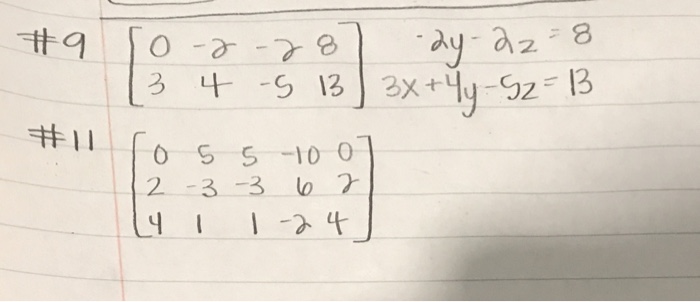 #9 0 -2 -2 8 -2y-2z=8
3 4 -5 13 3x+4y-5z=13
#11 0 5 5 -10 0
2 -3 -3 6 2
4 1 1 -2 4